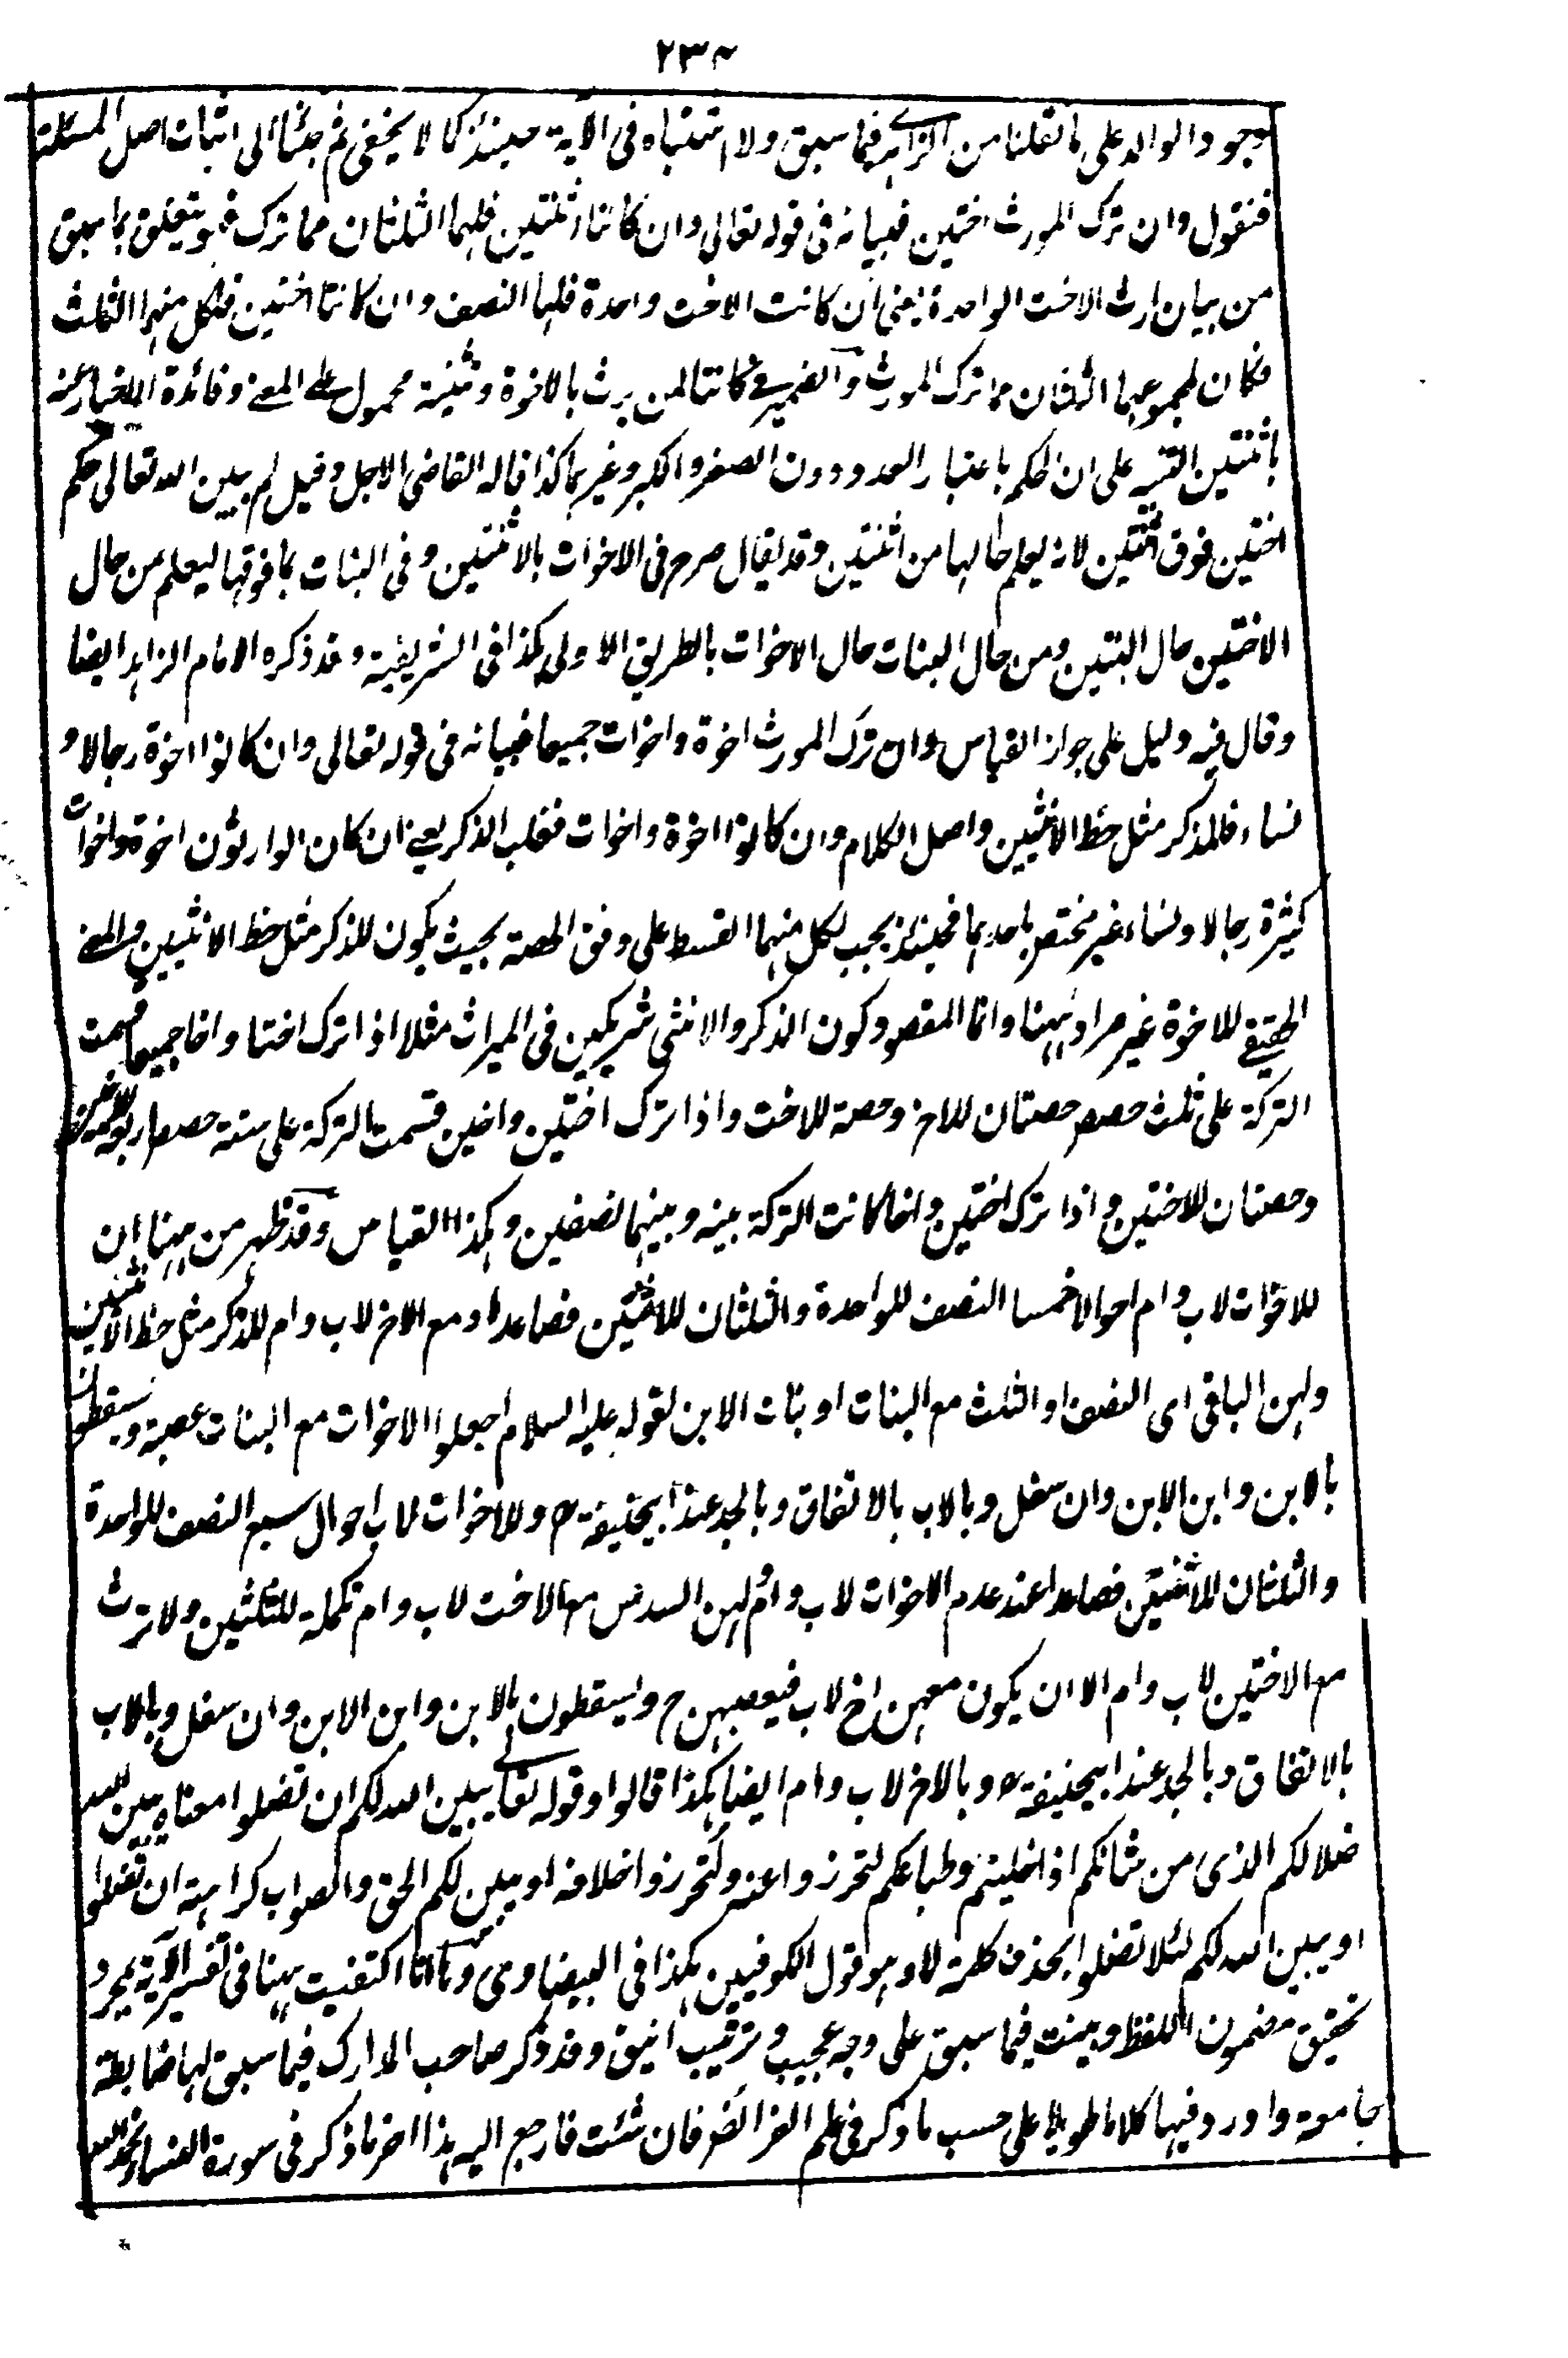 ٢٣٨
وجود الوالد على ما نقلنا من الزاهدي فيما سبق ولا اشتباه في الآية حينئذ كما لا يخفى ثم جئنا الى اثبات اصل المسئلة
فنقول وان ترك المورث اختين فبيانه في قوله تعالى وان كانتا اثنتين فلهما الثلثان مما ترك فهو يتعلق بما سبق
من بيان ارث الاخت الواحدة يعني ان كانت الاخت واحدة فلها النصف وان كانتا اختين فلكل منهما الثلث
فكان لمجموعهما الثلثان مما ترك المورث والضمير في كانتا لمن يرث بالاخوة وتثنية محمول على المعنى وفائدة الاخبار عنه
باثنتين التنبيه على ان الحكم باعتبار العدد دون الصغر والكبر وغيرهما كذا قاله القاضي الاجل وقيل لم يبين الله تعالى حكم
اختين فوق اثنتين لانه يعلم حالها من اثنتين وقد يقال صرح في الاخوات بالاثنتين وفي البنات بما فوقها ليعلم من حال
الاختين حال البنتين ومن حال البنات حال الاخوات بالطريق الاولى هكذا في الشريفية وقد ذكره الامام الزاهد ايضا
وقال فيه دليل على جواز القياس وان ترك المورث اخوة واخوات جميعا فبيانه في قوله تعالى وان كانوا اخوة رجالا و
نساء فللذكر مثل حظ الانثيين واصل الكلام وان كانوا اخوة واخوات فغلب الذكر يعني ان كان الوارثون اخوة واخوات
كثيرة رجالا ونساء غير مختص باحدهما فحينئذ يجب لكل منهما القسط على وفق الحصة بحيث يكون للذكر مثل حظ الانثيين والمعنى
الحقيقي للاخوة غير مراد ههنا وانما المقصود كون الذكر والانثى شريكين في الميراث مثلا اذا ترك اختا واخا جميعا قسمت
التركة على ثلث حصص حصتان للاخ وحصة للاخت واذا ترك اختين واخين قسمت التركة على ستة حصص اربعة للاخوين
وحصتان للاختين واذا ترك اختين واخا كانت التركة بينه وبينهما نصفين وهكذا القياس وقد ظهر من ههنا ان
للاخوات لاب وام احوالا خمسا النصف للواحدة والثلثان للاثنتين فصاعدا ومع الاخ لاب وام للذكر مثل حظ الانثيين
ولهن الباقي اى النصف او الثلث مع البنات او بنات الابن لقوله عليه السلام اجعلوا الاخوات مع البنات عصبة ويسقطن
بالابن وابن الابن وان سفل وبالاب بالاتفاق وبالجد عند ابيحنيفة رح وللاخوات لاب احوال سبع النصف للواحدة
والثلثان للاثنتين فصاعدا عند عدم الاخوات لاب وام ولهن السدس مع الاخت لاب وام تكملة للثلثين ولا ترث
مع الاختين لاب وام الا ان يكون معهن اخ لاب فيعصبهن ح ويسقطون بالابن وابن الابن وان سفل وبالاب
بالاتفاق وبالجد عند ابيحنيفة رح وبالاخ لاب وام ايضا هكذا قالوا وقوله تعالى يبين الله لكم ان تضلوا معناه يبين الله
ضلالكم الذى من شانكم اذا خليتم وطباعكم لتحرزوا عنه وتتحرزوا خلافه او يبين لكم الحق والصواب كراهة ان تضلوا
او يبين الله لكم لئلا تضلوا بحذف كلمة لا وهو قول الكوفيين هكذا في البيضاوى وانا اكتفيت ههنا في تفسير الآية بمجرد
تحقيق مضمون اللفظ وبينت فيما سبق على وجه عجيب وترتيب انيق وقد ذكر صاحب المدارك فيما سبق لها ضابطة
جامعة واورد فيها كلاما طويلا على حسب ما ذكر في علم الفرائض فان شئت فارجع اليه هذا اخر ما ذكر في سورة النساء والحمد لله